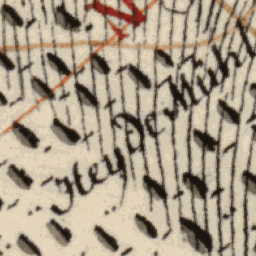 Hey De Mühl